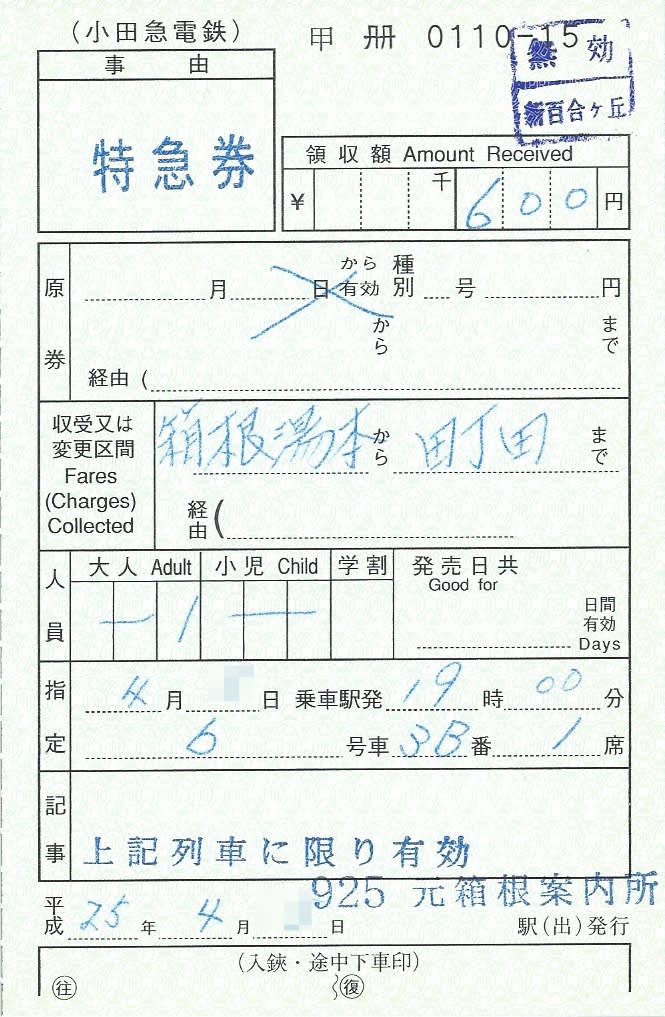 (小田急電鉄) 甲 册 0110-15
無効
新百合ヶ丘
事由
特急券
領収額 Amount Received
千
¥ 600 円
原券
月 日 から有効 種別 号 円
から まで
経由 (
収受又は変更区間 Fares (Charges) Collected
箱根湯本 から 町田 まで
経由 (
人員
大人 Adult 小児 Child 学割 発売日共 Good for
1
日間有効 Days
指定
4月 日 乗車駅発 19時 00分
6号車 3B番 1席
記事
上記列車に限り有効
925 元箱根案内所
平成 25年 4月 日 駅(出)発行
(入鋏・途中下車印)
往 復